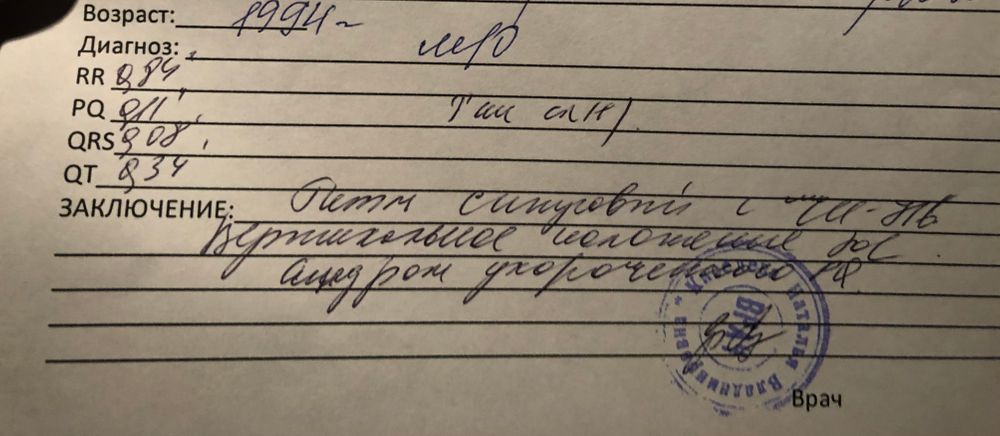 Возраст: 1994г
Диагноз: м/о
RR 0,84
PQ 0,11
QRS 0,08
QT 0,34
ЗАКЛЮЧЕНИЕ: Ритм синусовый с
Вертикальное положение ЭОС
Синдром укороченного PQ.
Наталья Владимировна
ВРАЧ
Врач